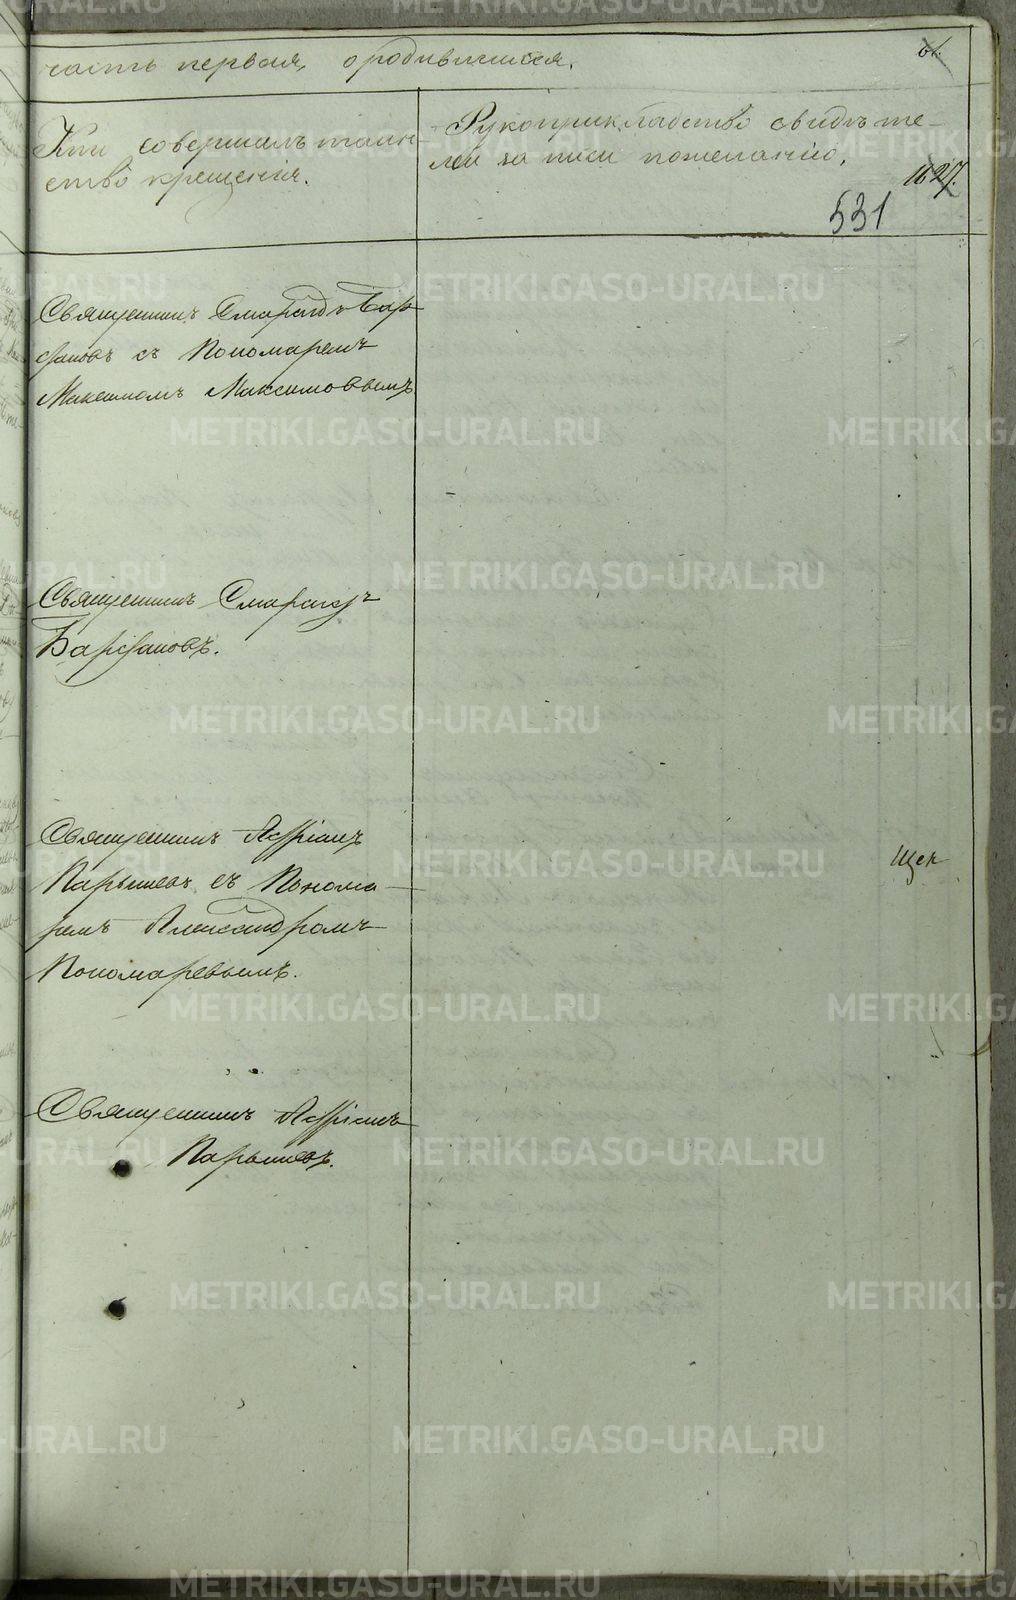 часть первая, ородившихся.
61.
Кто совершалъ таин-
ство крещенія.
Рукоприкладство свидѣте-
лей записи пожеланію.
1627.
531
Священникъ Смарагдъ Бар
фановъ съ Пономаремъ
Максимомъ Максимовымъ
Священникъ Смарагдъ
Барфановъ.
Священникъ Адріанъ
Парышевъ съ Понома-
ремъ Александромъ
Пономаревымъ.
Щек
Священникъ Адріанъ
Парышевъ.
METRIKI.GASO-URAL.RU